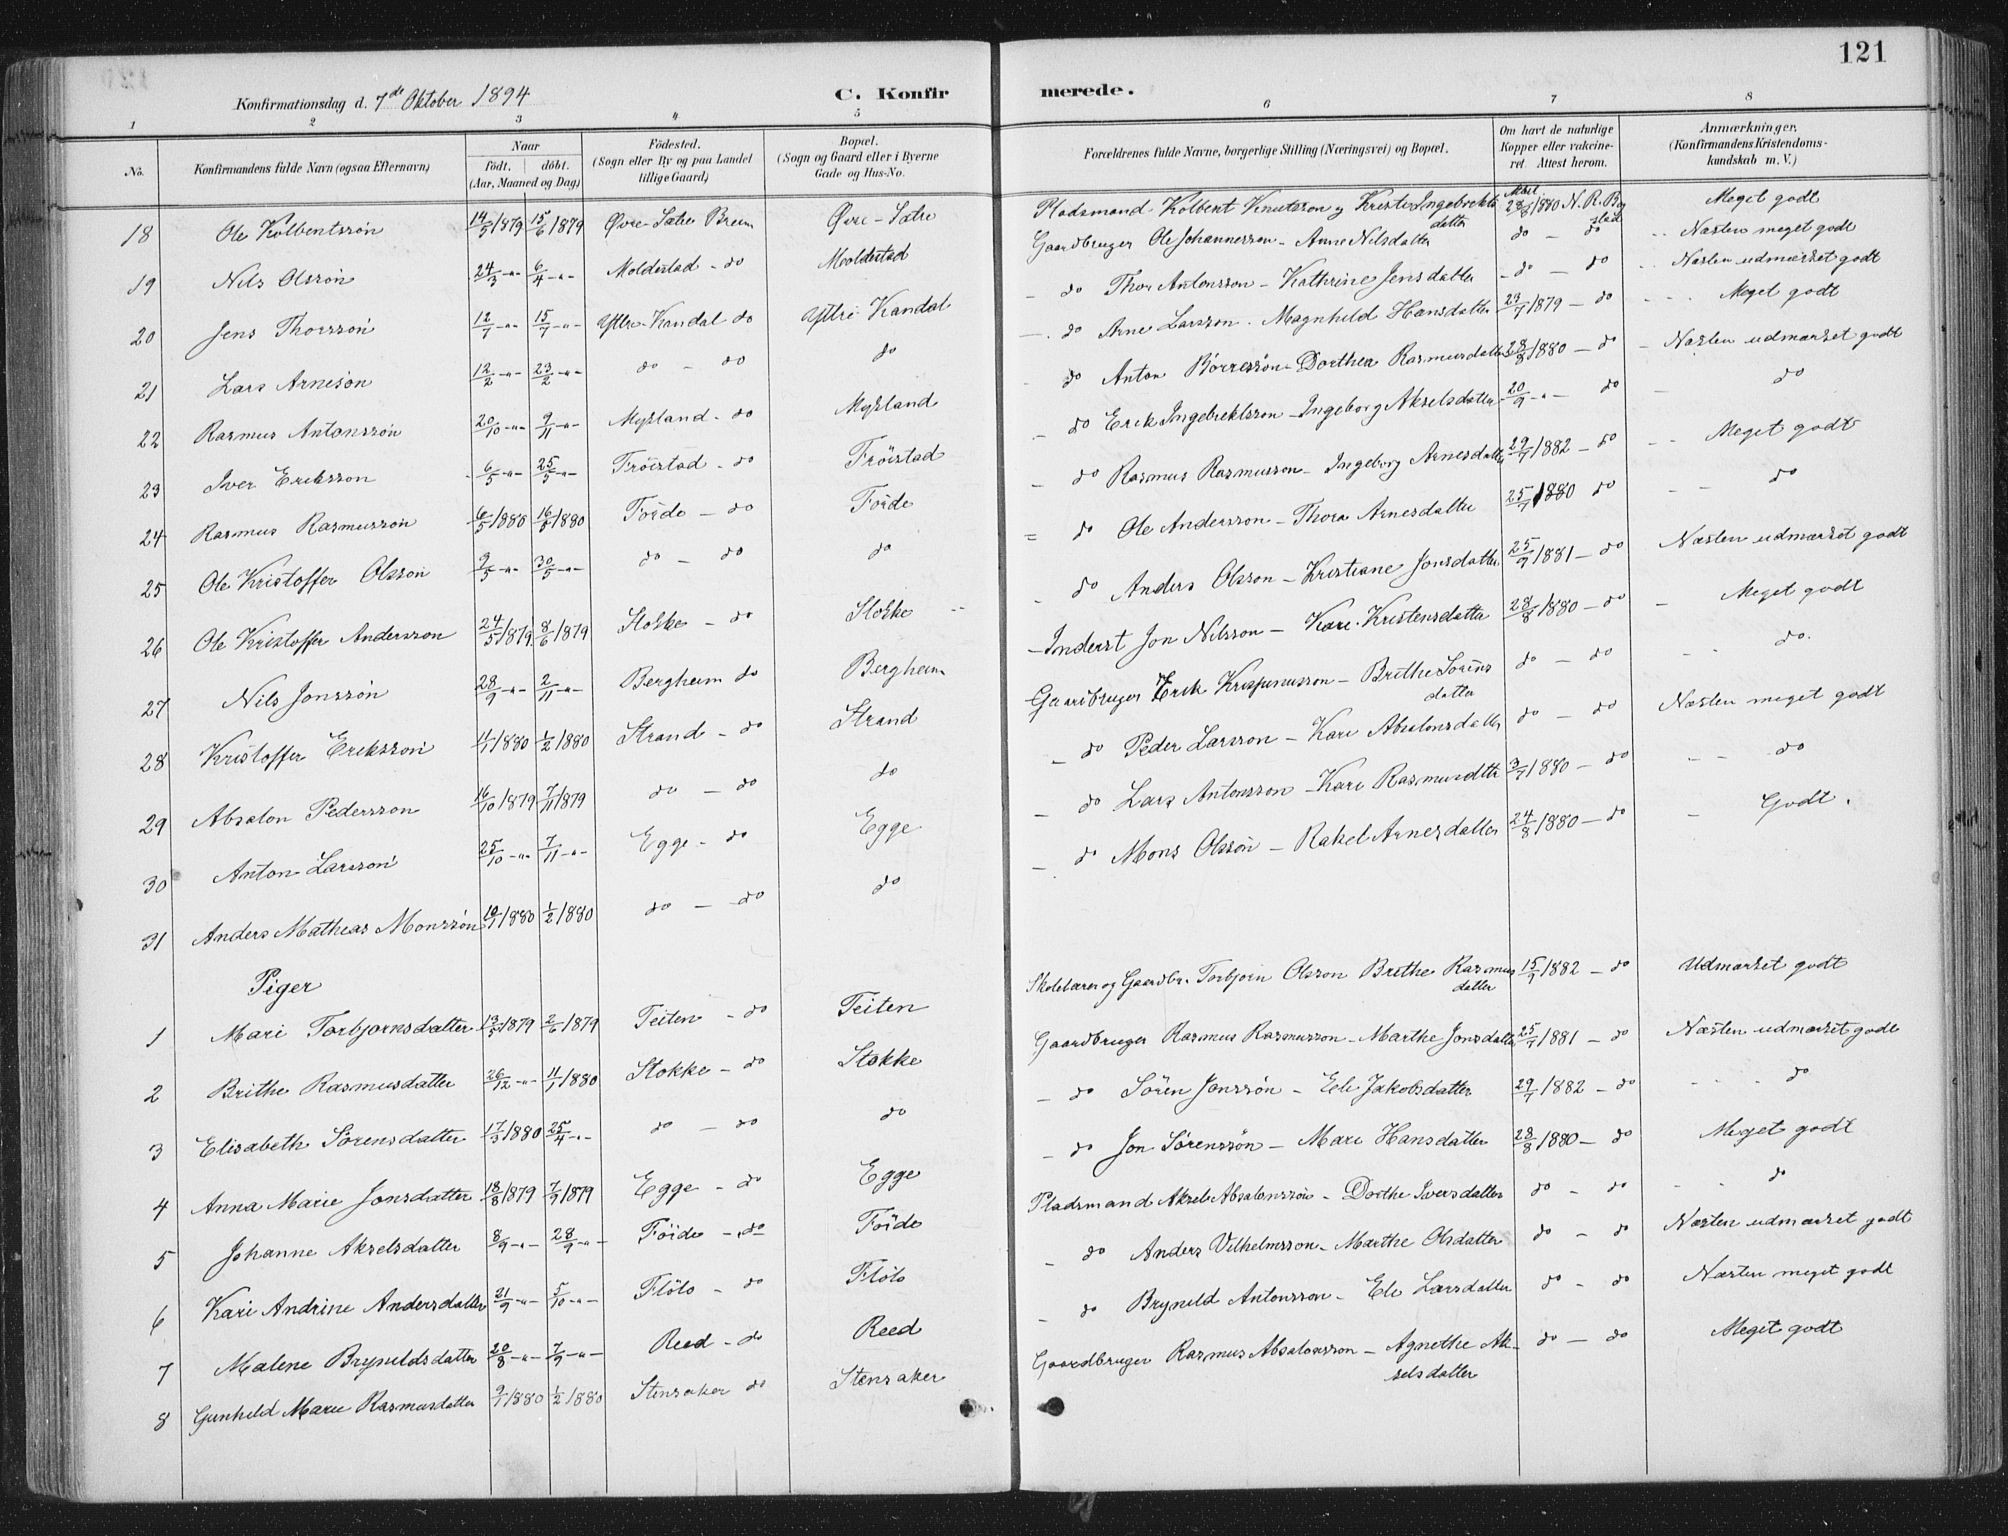 121
Konfirmationsdag d. 7de Oktober 1894 C. Konfirmerede.
1 2 3 4 5 6 7 8
No. Konfirmandens fulde Navn (ogsaa Efternavn) Naar födt. döbt. (Aar, Maaned og Dag) Födested. (Sogn eller By og paa Landet tillige Gaard) Bopæl. (Sogn og Gaard eller i Byerne Gade og Hus-No. Forældrenes fulde Navne, borgerlige Stilling (Næringsvei) og Bopæl. Om havt de naturlige Kopper eller vakcineret Attest herom. Anmærkninger. (Konfirmandens Kristendomskundskab m. V.)
18 Ole Kolbentssön 14/5 1879 15/6 1879 Øvre-Sætre Breim Øvre-Sætre Pladsmand Kolbent Knutsson og Kristi Ingebrektsdatter 28/8 1880 N. R. Meget godt
19 Nils Olssön 24/3 -"- 6/4 -"- Moldestad - do Moldestad Gaardbruger Ole Johannesson - Anne Nilsdatter do - do Næsten meget godt
20 Jens Thorssön 12/7 -"- 15/7 -"- Yttre-Kandal do Yttre-Kandal - do Thor Antonsson - Kathrine Jensdatter - do - do Næsten udmærket godt
21 Lars Arnesön 12/2 -"- 23/2 -"- do - do do - do Arne Larsson - Magnhild Hansdatter 23/7 1879 - do Meget godt
22 Rasmus Antonssön 20/10 -"- 9/11 -"- Mykland - do Mykland - do Anton Börressön - Dorthea Rasmusdatter 28/8 1880 - do Næsten udmærket godt
23 Iver Eriksson 6/5 -"- 25/5 -"- Fröistad - do Fröistad - do Erik Ingebrektsson - Ingeborg Akselsdatter 20/9 -"- do do
24 Rasmus Rasmussön 6/5 1880 16/5 1880 Föide - do Föide - do Rasmus Rasmusson - Ingeborg Arnesdatter 29/7 1882 - do Meget godt
25 Ole Kristoffer Olsson 9/5 -"- 30/5 -"- do - do do - do Ole Andersson - Thora Arnesdatter 25/7 1880 do do
26 Ole Kristoffer Andersson 24/5 1879 8/6 1879 Stokke - do Stokke - do Anders Olsson - Kristiane Jonsdatter 25/9 1881 - do Næsten udmærket godt
27 Nils Jonssön 28/9 -"- 2/11 -"- Bergheim do Bergheim - Inderst Jon Nilsson - Kari Kristensdatter 28/8 1880 - do Meget godt
28 Kristoffer Eriksson 11/1 1880 1/2 1880 Strand - do Strand Gaardbruger Erik Krispinusson - Brithe Sörensdatter do - do do.
29 Absalon Pedersson 16/10 1879 7/11 1879 do - do do - do Peder Larsson - Kari Absalonsdatter do - do Næsten meget godt
30 Anton Larsson 25/10 -"- 7/11 -"- Egge - do Egge - do Lars Antonsson - Kari Rasmusdtte 3/7 1880 - do do
31 Anders Mathias Monssön 10/1 1880 1/2 1880 do - do do - do Mons Olssön - Rakel Arnesdatter 24/8 1880 - do Godt.
Piger
1 Mari Torbjornsdatter 13/5 1879 2/6 1879 Teiten - do Teiten Skolelærer og Gaardbr. Torbjorn Olsson Brithe Rasmusdatter 15/9 1882 - do Udmærket godt
2 Brithe Rasmusdatter 26/12 -"- 11/1 1880 Stokke - do Stokke Gaardbruger Rasmus Rasmusson - Marthe Jonsdatter 25/7 1881 - do Næsten udmærket godt
3 Elisabeth Sörensdatter 17/3 1880 25/4 -"- do - do do - do Sören Jonssön - Eli Jakobsdatter 29/7 1882 - do do
4 Anna Marie Jonsdatter 18/8 1879 7/9 1879 Egge - do Egge - do Jon Sörenssön - Mari Hansdatter 28/8 1880 - do Meget godt
5 Johanne Akselsdatter 8/9 -"- 28/9 -"- Föide - do Föide Pladsmand Aksel Absalonssön - Dorthe Iversdatter do - do do
6 Kari Andrine Andersdatter 21/9 -"- 5/10 -"- Flölo - do Flölo - do Anders Vilhelmsson - Marthe Olsdatter do - do Næsten udmærket godt
7 Malene Bryneldsdatter 20/8 -"- 7/9 -"- Reed - do Reed - do Bryneld Antonsson - Eli Larsdatter do - do Næsten meget godt
8 Gunhild Marie Rasmusdatter 9/1 1880 1/2 1880 Stensaker do Stensaker Gaardbruger Rasmus Absalonsson - Agnethe Akselsdatter do - do Meget godt